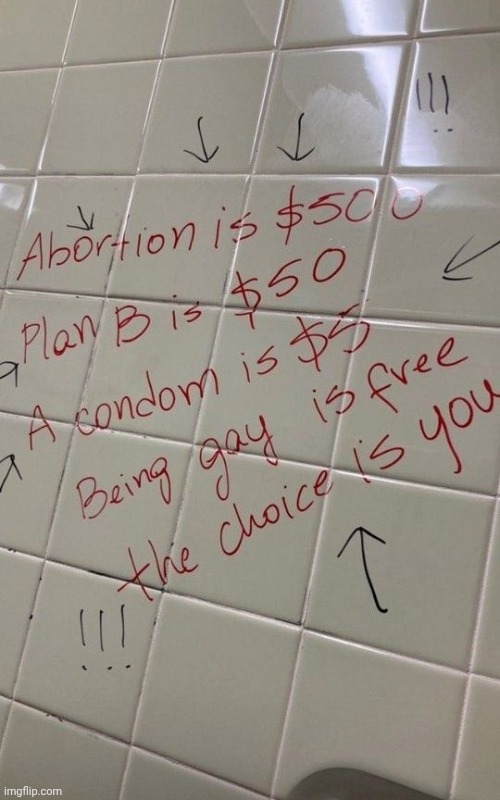 !!!
Abortion is $500
Plan B is $50
A condom is $5
Being gay is free
the choice is you
!!!
imgflip.com